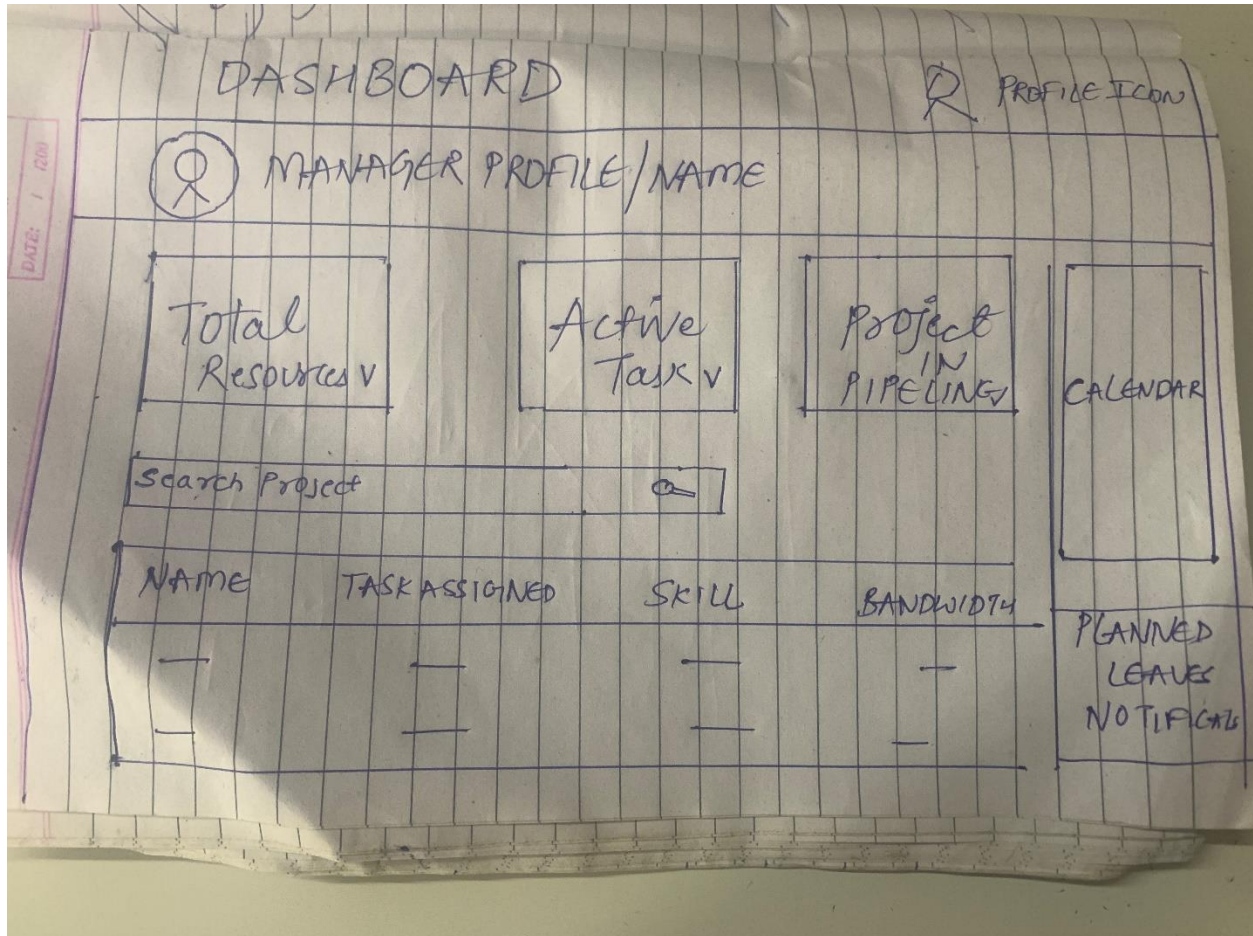 DASHBOARD
PROFILE ICON
MANAGER PROFILE/NAME
Total
Resources v
Active
Task v
Project
IN
PIPELINE v
CALENDAR
Search Project
NAME TASK ASSIGNED SKILL BANDWIDTH
PLANNED
LEAVES
DATE: / /200